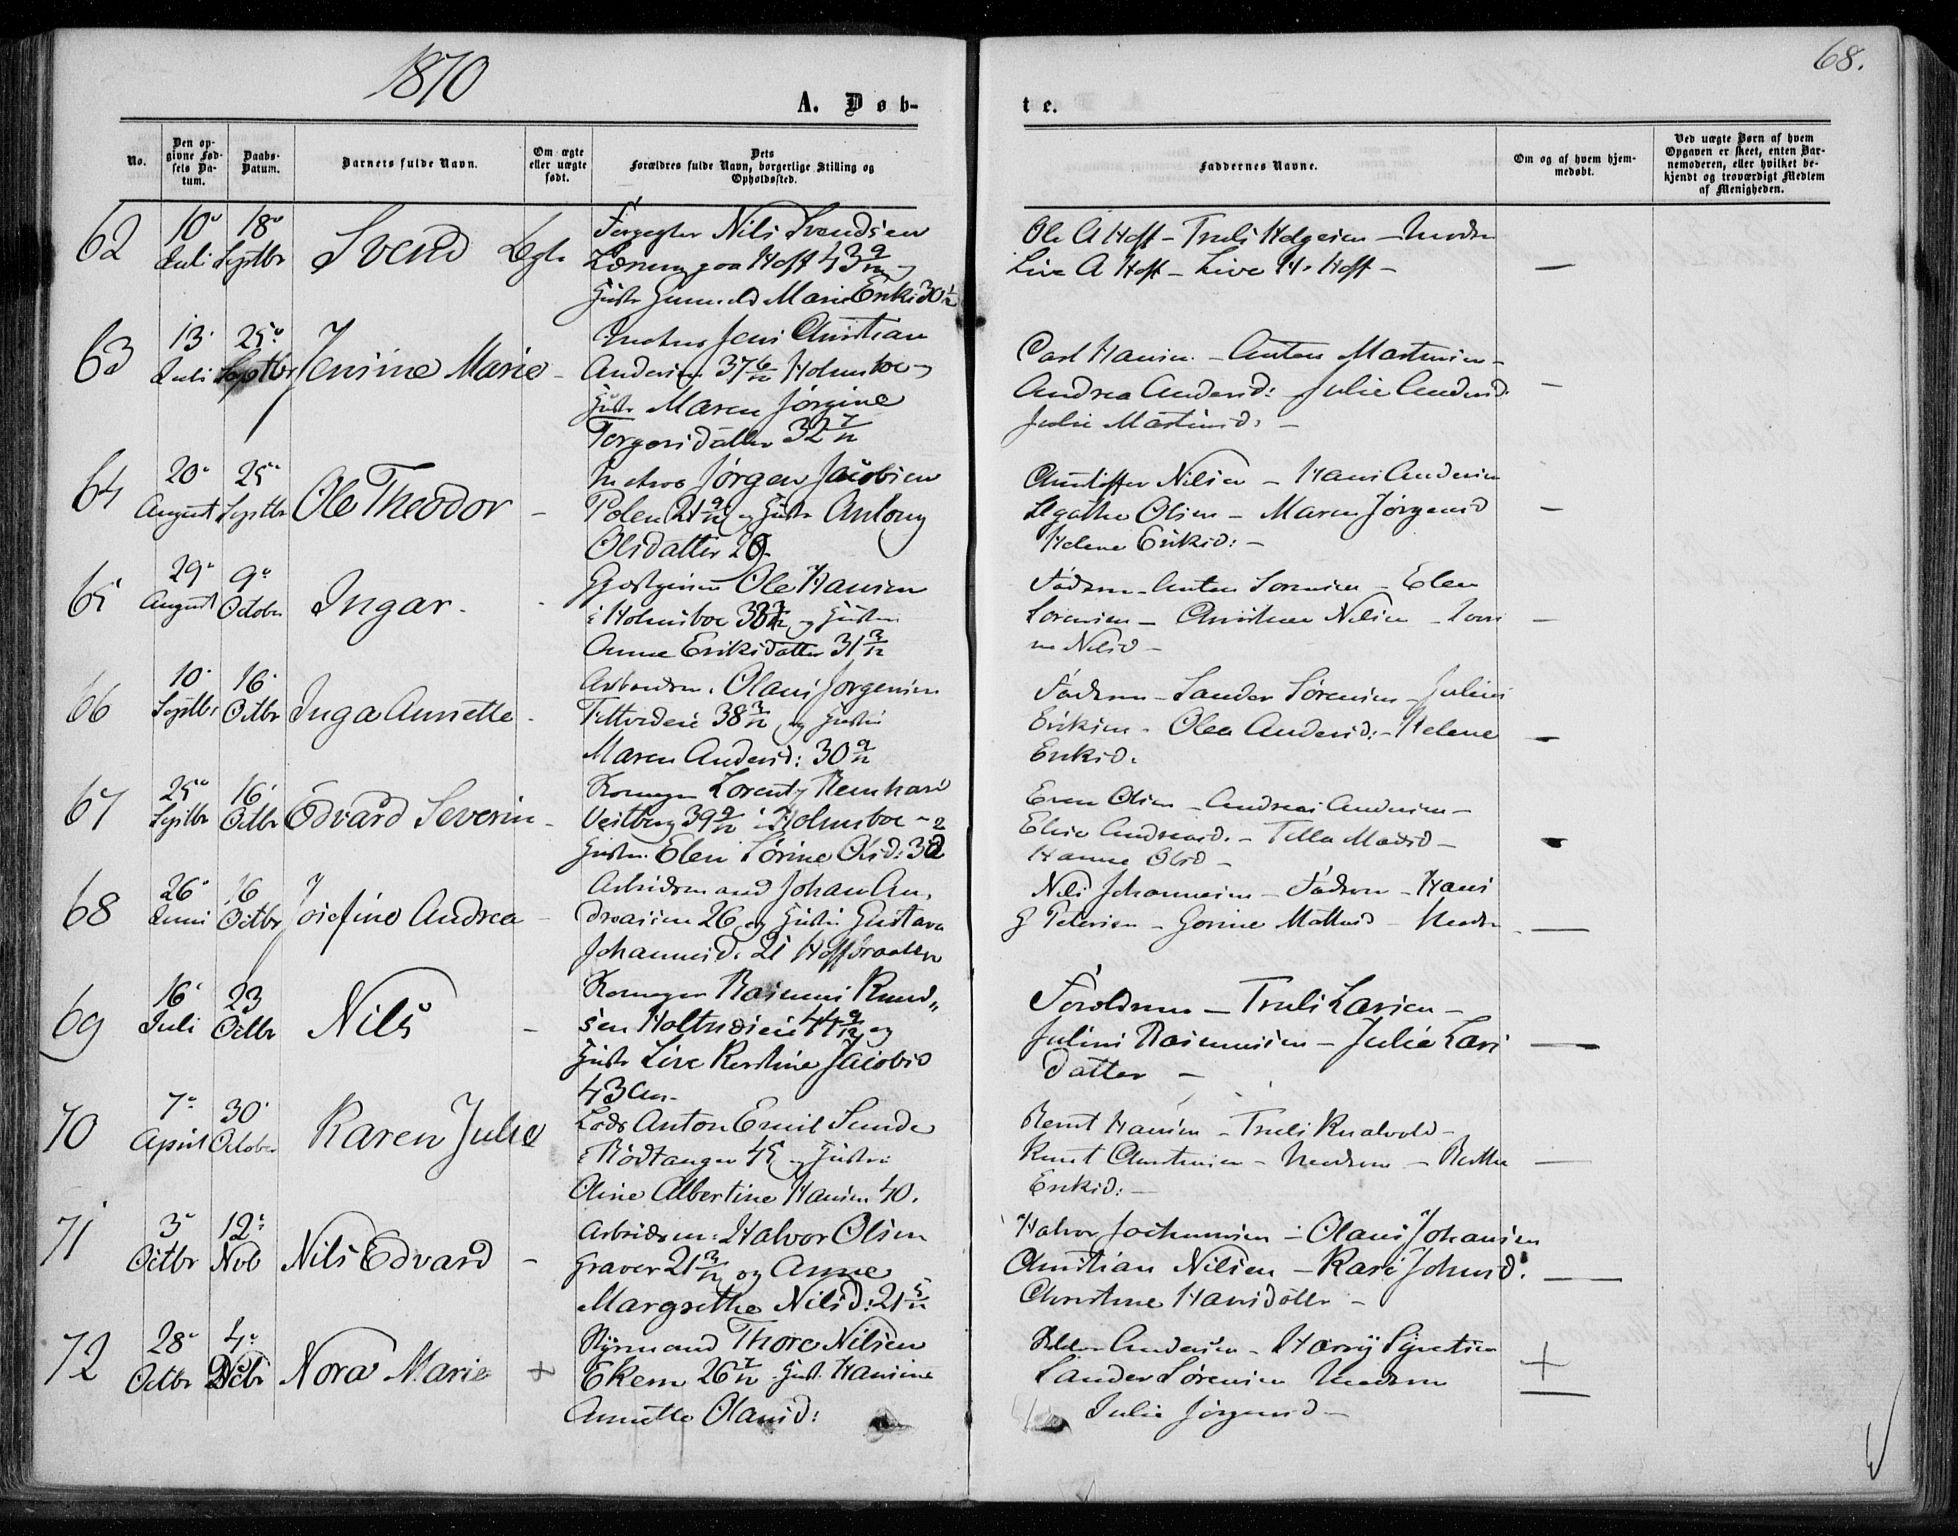 1870
68.
A. Døb-
te.
No.
Den op-
givne Fød-
sels Da-
tum.
Daabs-
Datum.
Barnets fulde Navn.
Om ægte
eller uægte
født.
Dets
Forældres fulde Navn, borgerlige Stilling og
Opholdssted.
Faddernes Navne.
Om og af hvem hjem-
medøbt.
Ved uægte Børn af hvem
Opgaven er skeet, enten Bar-
nemoderen, eller hvilket be-
kjendt og troværdigt Medlem
af Menigheden.
62
10 Juli
18 Septbr
Svend
Ægte
Nils Svendsen
paa Hoff 43 9/12 og
Hustr Gunnild Marie Eriksd 30 1/12
Ole A Hoff - Truls Helgesen - Modr
Live A Hoff - Live H. Hoff -
63
13 Juli
25 Septbr
Jensine Marie -
Jens Christian
Andersen 37 6/12 Holmsboe og
Hustr Maren Jørgine
Torgersdatter 32 7/12
Carl Hansen - Anton Martinsen -
Andrea Andersd: Julie Andersd
Julie Martinsd. -
64
20 August
25 Septbr
Ole Theodor -
Jørgen Jacobsen
Polen 21 9/12 og Hustr Antony
Olsdatter 20
Christoffer Nilsen - Hans Andersen
Agathe Olsen - Maren Jørgensd
Helene Eriksd: -
65
29 August
9 October
Ingar.
Ole Hansen
i Holmsboe og Hustru
Anne Eriksdatter 31 3/12
Fadren - Anton Sorensen - Elen
Sorensen - Christian Nilsen -
Nilsd -
66
10 Septbr
16 Octbr
Inga Annette -
Arbeidsm. Olaus Jorgensen
38 3/12 og Hustru
Maren Andersd: 30 9/12
Fadren - Sander Sørensen - Julius
Eriksen - Olea Andersd: - Helene
Eriksd.
67
25 Septbr
16 Octbr
Edvard Severin -
Lorentz Reinhard
Vestberg 39 9/12 i Holmsboe -
Hustru Elen Sørine Olsd: 32
Even Olsen - Andreas Andersen -
Elise Andreasd. - Tilla Madsd -
Hanne Olsd -
68
26 Juni
16 Octbr
Josefine Andrea -
Arbeidsmand Johan An-
dreasen 26 og Hustru Gustava
Johannesd. 21 Hoffsraaten
Nils Johannesen - Fadren - Hans
G Petersen - Gorine - Modr
69
16 Juli
23 Octbr
Nils -
Rasmus Knud-
sen Holtnæseie 44 9/12 og
Hustr Live Kerstine Jacobsd
43 Aar
Foroldrene - Truls Larsen -
Julius Rasmussen - Julie Lars
datter -
70
7 April
30 October
Karen Julie
Lods Anton Emil Sunde
i Rødtangen 45 og Hustru
Oline Albertine Hansen 40.
Bernt Hansen - Truls Knatvold -
Knut Christensen - Modren - Berthe
Eriksd: -
71
3 Octbr
12 Nvb
Nils Edvard -
Arbeidsm: Halvor Olsen
Graver 21 3/12 og Anne
Margrethe Nilsd: 21 5/12
Halvor Jochumsen - Olaus Johansen
Christian Nilsen - Kari Johnsd.
Christine Hansdatter -
72
28 Octbr
4 Dcbr
Nora Marie
+
Styrmand Thore Nilsen
Ekern 26 7/12 Hust. Hansine
Annette Olausd:
Andersen - Harry Syvertsen
Sander Sørensen Modren
Julie Jørgensd -
+